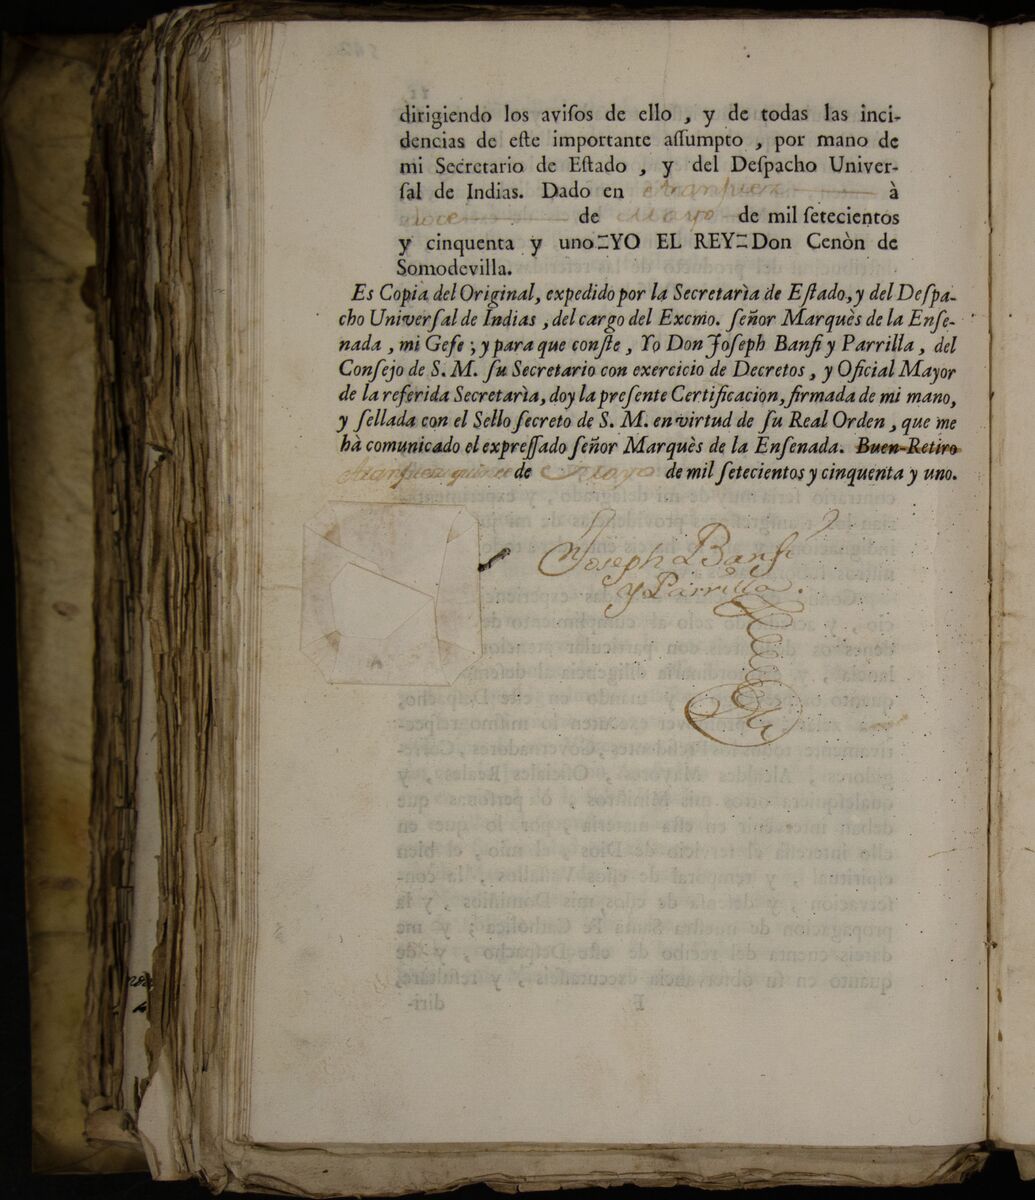 dirigiendo los aviſos de ello , y de todas las inci-
dencias de eſte importante aſſumpto , por mano de
mi Secretario de Eſtado , y del Deſpacho Univer-
ſal de Indias. Dado en Aranjuez à
doce de Mayo de mil ſetecientos
y cinquenta y uno=YO EL REY=Don Cenòn de
Somodevilla.
Es Copia del Original, expedido por la Secretarìa de Eſtado, y del Deſpa-
cho Univerſal de Indias , del cargo del Excmo. ſeñor Marquès de la Enſe-
nada , mi Gefe ; y para que conſte , Yo Don Joſeph Banfi y Parrilla , del
Conſejo de S. M. ſu Secretario con exercicio de Decretos , y Oficial Mayor
de la referida Secretarìa, doy la preſente Certificacion, firmada de mi mano,
y ſellada con el Sello ſecreto de S. M. en virtud de ſu Real Orden , que me
hà comunicado el expreſſado ſeñor Marquès de la Enſenada. Buen-Retiro
Aranjuez quince de Mayo de mil ſetecientos y cinquenta y uno.
Joseph Banfi
y Parrilla.